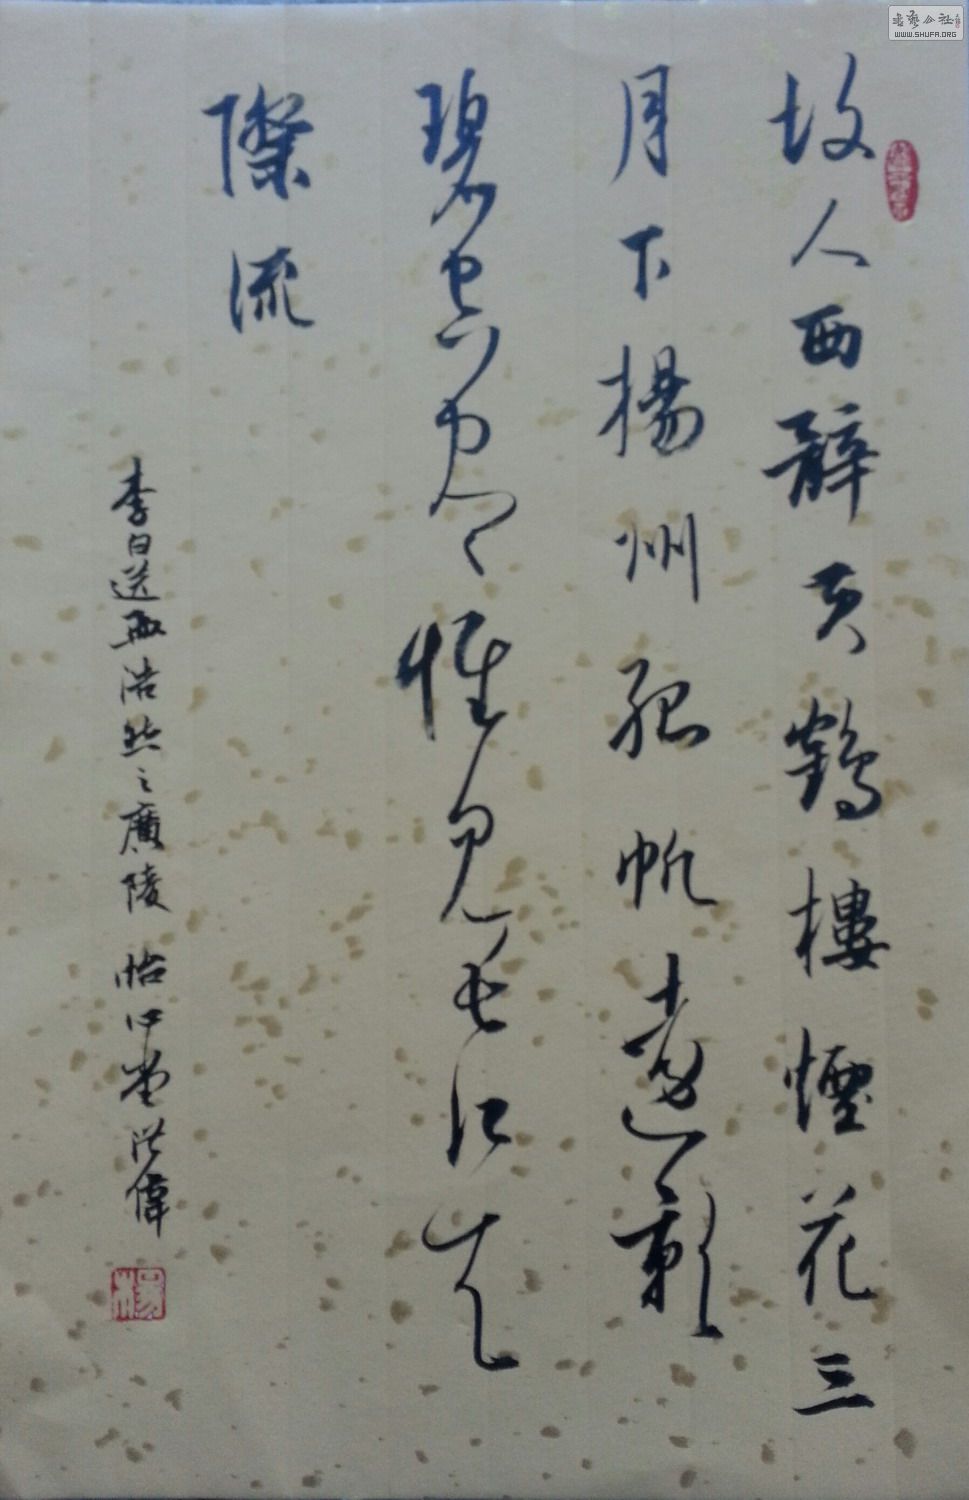 故人西辭黃鶴樓煙花三
月下揚州孤帆遠影
碧空尽惟見長江天
際流
李白送孟浩然之廣陵 怡心堂洪偉
WWW.SHUFA.ORG